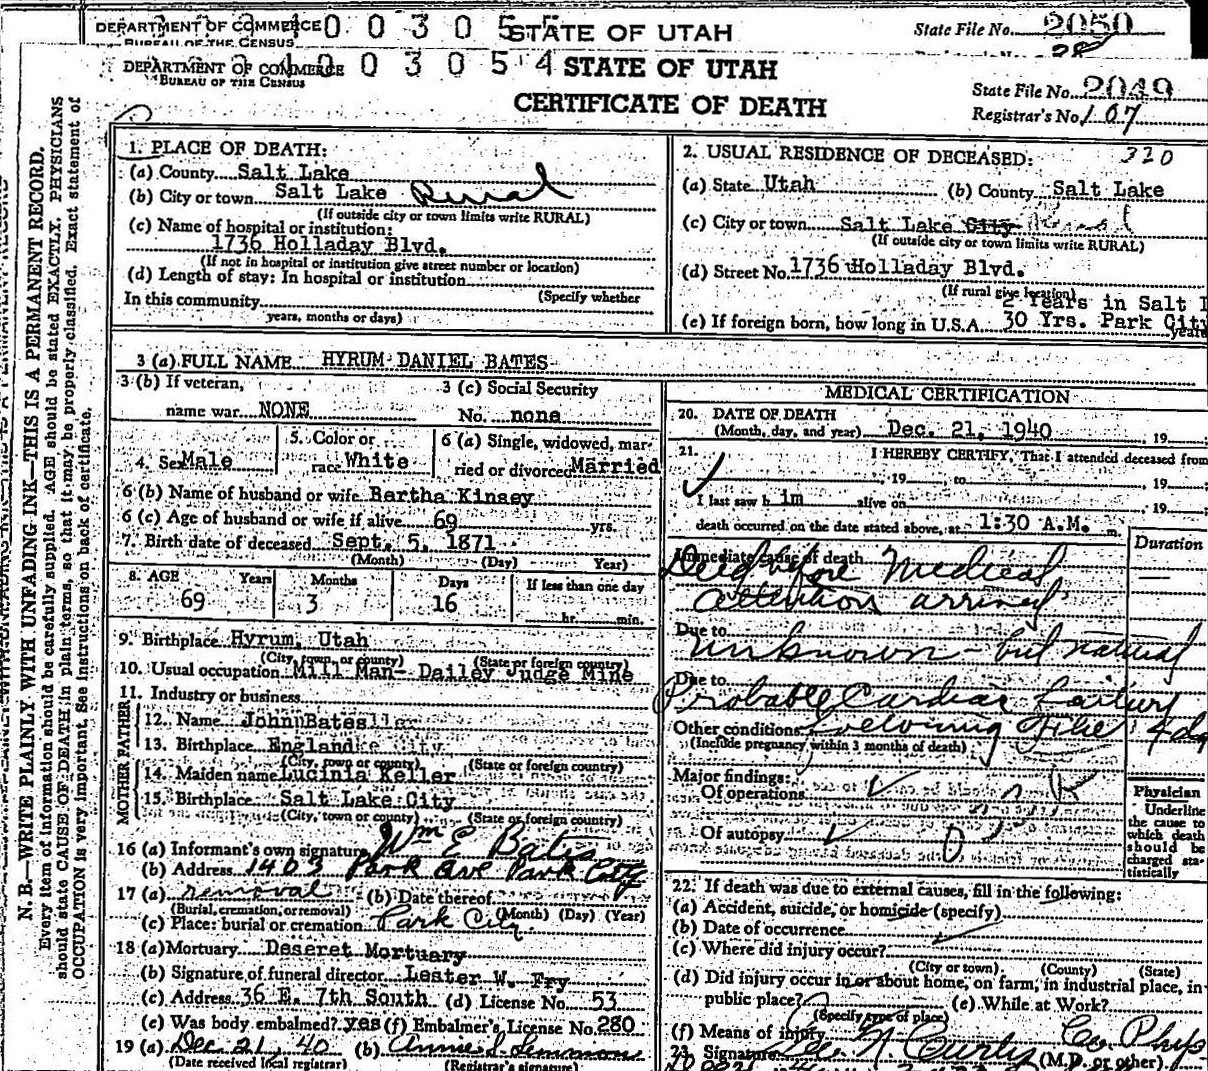 DEPARTMENT OF COMMERCE
BUREAU OF THE CENSUS
1 0 0 3 0 5 5
STATE OF UTAH
State File No. 2050
28
DEPARTMENT OF COMMERCE
BUREAU OF THE CENSUS
0 0 3 0 5 4
STATE OF UTAH
CERTIFICATE OF DEATH
State File No. 2049
Registrar's No. 107
N. B.—WRITE PLAINLY, WITH UNFADING INK—THIS IS A PERMANENT RECORD.
Every item of information should be carefully supplied. AGE should be stated EXACTLY. PHYSICIANS
should state CAUSE OF DEATH in plain terms, so that it may be properly classified. Exact statement of
OCCUPATION is very important. See instructions on back of certificate.
1. PLACE OF DEATH:
(a) County Salt Lake
(b) City or town Salt Lake Rural
(If outside city or town limits write RURAL)
(c) Name of hospital or institution:
1736 Holladay Blvd.
(If not in hospital or institution give street number or location)
(d) Length of stay: In hospital or institution
(Specify whether
In this community
years, months or days)
2. USUAL RESIDENCE OF DECEASED: 320
(a) State Utah (b) County Salt Lake
(c) City or town Salt Lake City Rural
(If outside city or town limits write RURAL)
(d) Street No. 1736 Holladay Blvd.
(If rural give location)
2 Years in Salt L
(e) If foreign born, how long in U.S.A. 30 Yrs. Park City
years
3 (a) FULL NAME HYRUM DANIEL BATES
3 (b) If veteran,
name war NONE
3 (c) Social Security
No. none
4. Sex Male
5. Color or
race White
6 (a) Single, widowed, mar-
ried or divorced Married
6 (b) Name of husband or wife Bertha Kinsey
6 (c) Age of husband or wife if alive 69 yrs.
7. Birth date of deceased Sept. 5, 1871
(Month) (Day) Year)
8. AGE Years Months Days If less than one day
69 3 16 hr. min.
9. Birthplace Hyrum, Utah
(City, town, or county) (State or foreign country)
10. Usual occupation Mill Man- Dailey Judge Mine
11. Industry or business
FATHER
12. Name John Bates
13. Birthplace England
(City, town or county) (State or foreign country)
MOTHER
14. Maiden name Lucinia Keller
15. Birthplace Salt Lake City
(City, town or county) (State or foreign country)
16 (a) Informant's own signature Wm E Bates
(b) Address 1403 Park Ave Park City
17 (a) removal (b) Date thereof
(Burial, cremation, or removal) (Month) (Day) (Year)
(c) Place: burial or cremation Park City
18 (a) Mortuary Deseret Mortuary
(b) Signature of funeral director Lester W. Fry
(c) Address 36 E. 7th South (d) License No. 53
(e) Was body embalmed? yes (f) Embalmer's License No. 280
19 (a) Dec 21, 40 (b) Annie S. Lemmon
(Date received local registrar) (Registrar's signature)
MEDICAL CERTIFICATION
20. DATE OF DEATH
(Month, day, and year) Dec. 21, 1940 , 19
21. I HEREBY CERTIFY, That I attended deceased from
, 19 , to , 19
I last saw h im alive on , 19
death occurred on the date stated above, at 1:30 A.M. m.
Duration
Immediate cause of death
Died before Medical
attention arrived
Due to
unknown - but natural
Due to
Probable Cardiac failure
Other conditions following Flu 4 da
(Include pregnancy within 3 months of death)
Major findings:
Of operations
Of autopsy
Physician
Underline
the cause to
which death
should be
charged sta-
tistically
22. If death was due to external causes, fill in the following:
(a) Accident, suicide, or homicide (specify)
(b) Date of occurrence
(c) Where did injury occur?
(City or town) (County) (State)
(d) Did injury occur in or about home, on farm, in industrial place, in
public place? (e) While at Work?
(Specify type of place)
(f) Means of injury
Co. Phys
23. Signature N Curtis (M.D. or other)